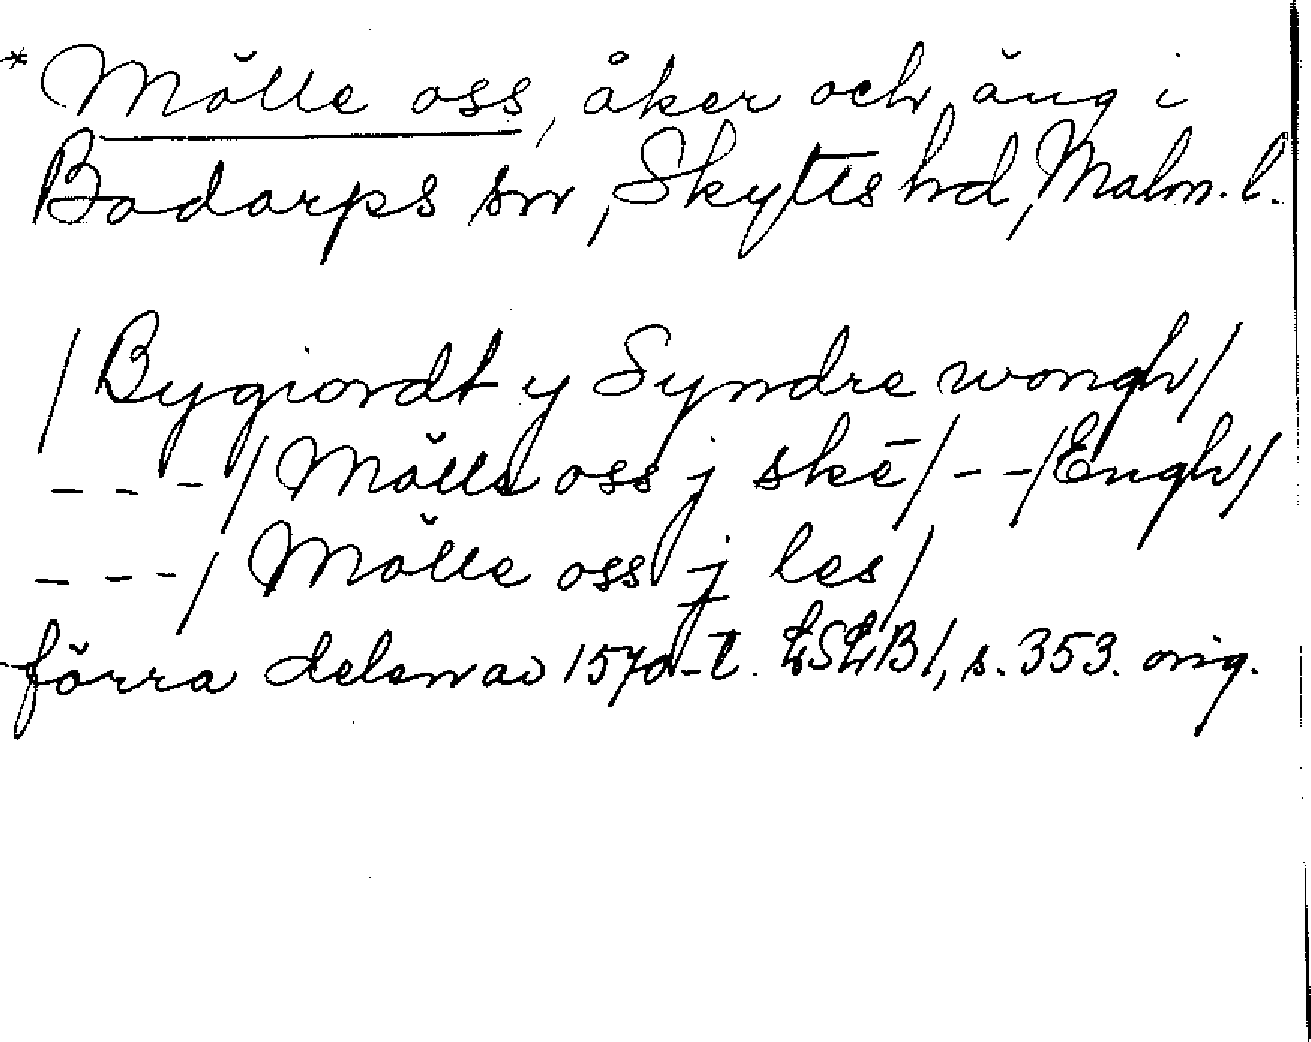 * Mölle oss, åker och äng i
Bodarps sn, Skytts hd, Malm. l.
/Bygiordt y Syndre wongh/
---/Mölle oss j ske/--/Engh/
---/Mölle oss j les/
förra delen av 1570-t. LSLB1, s. 353. orig.